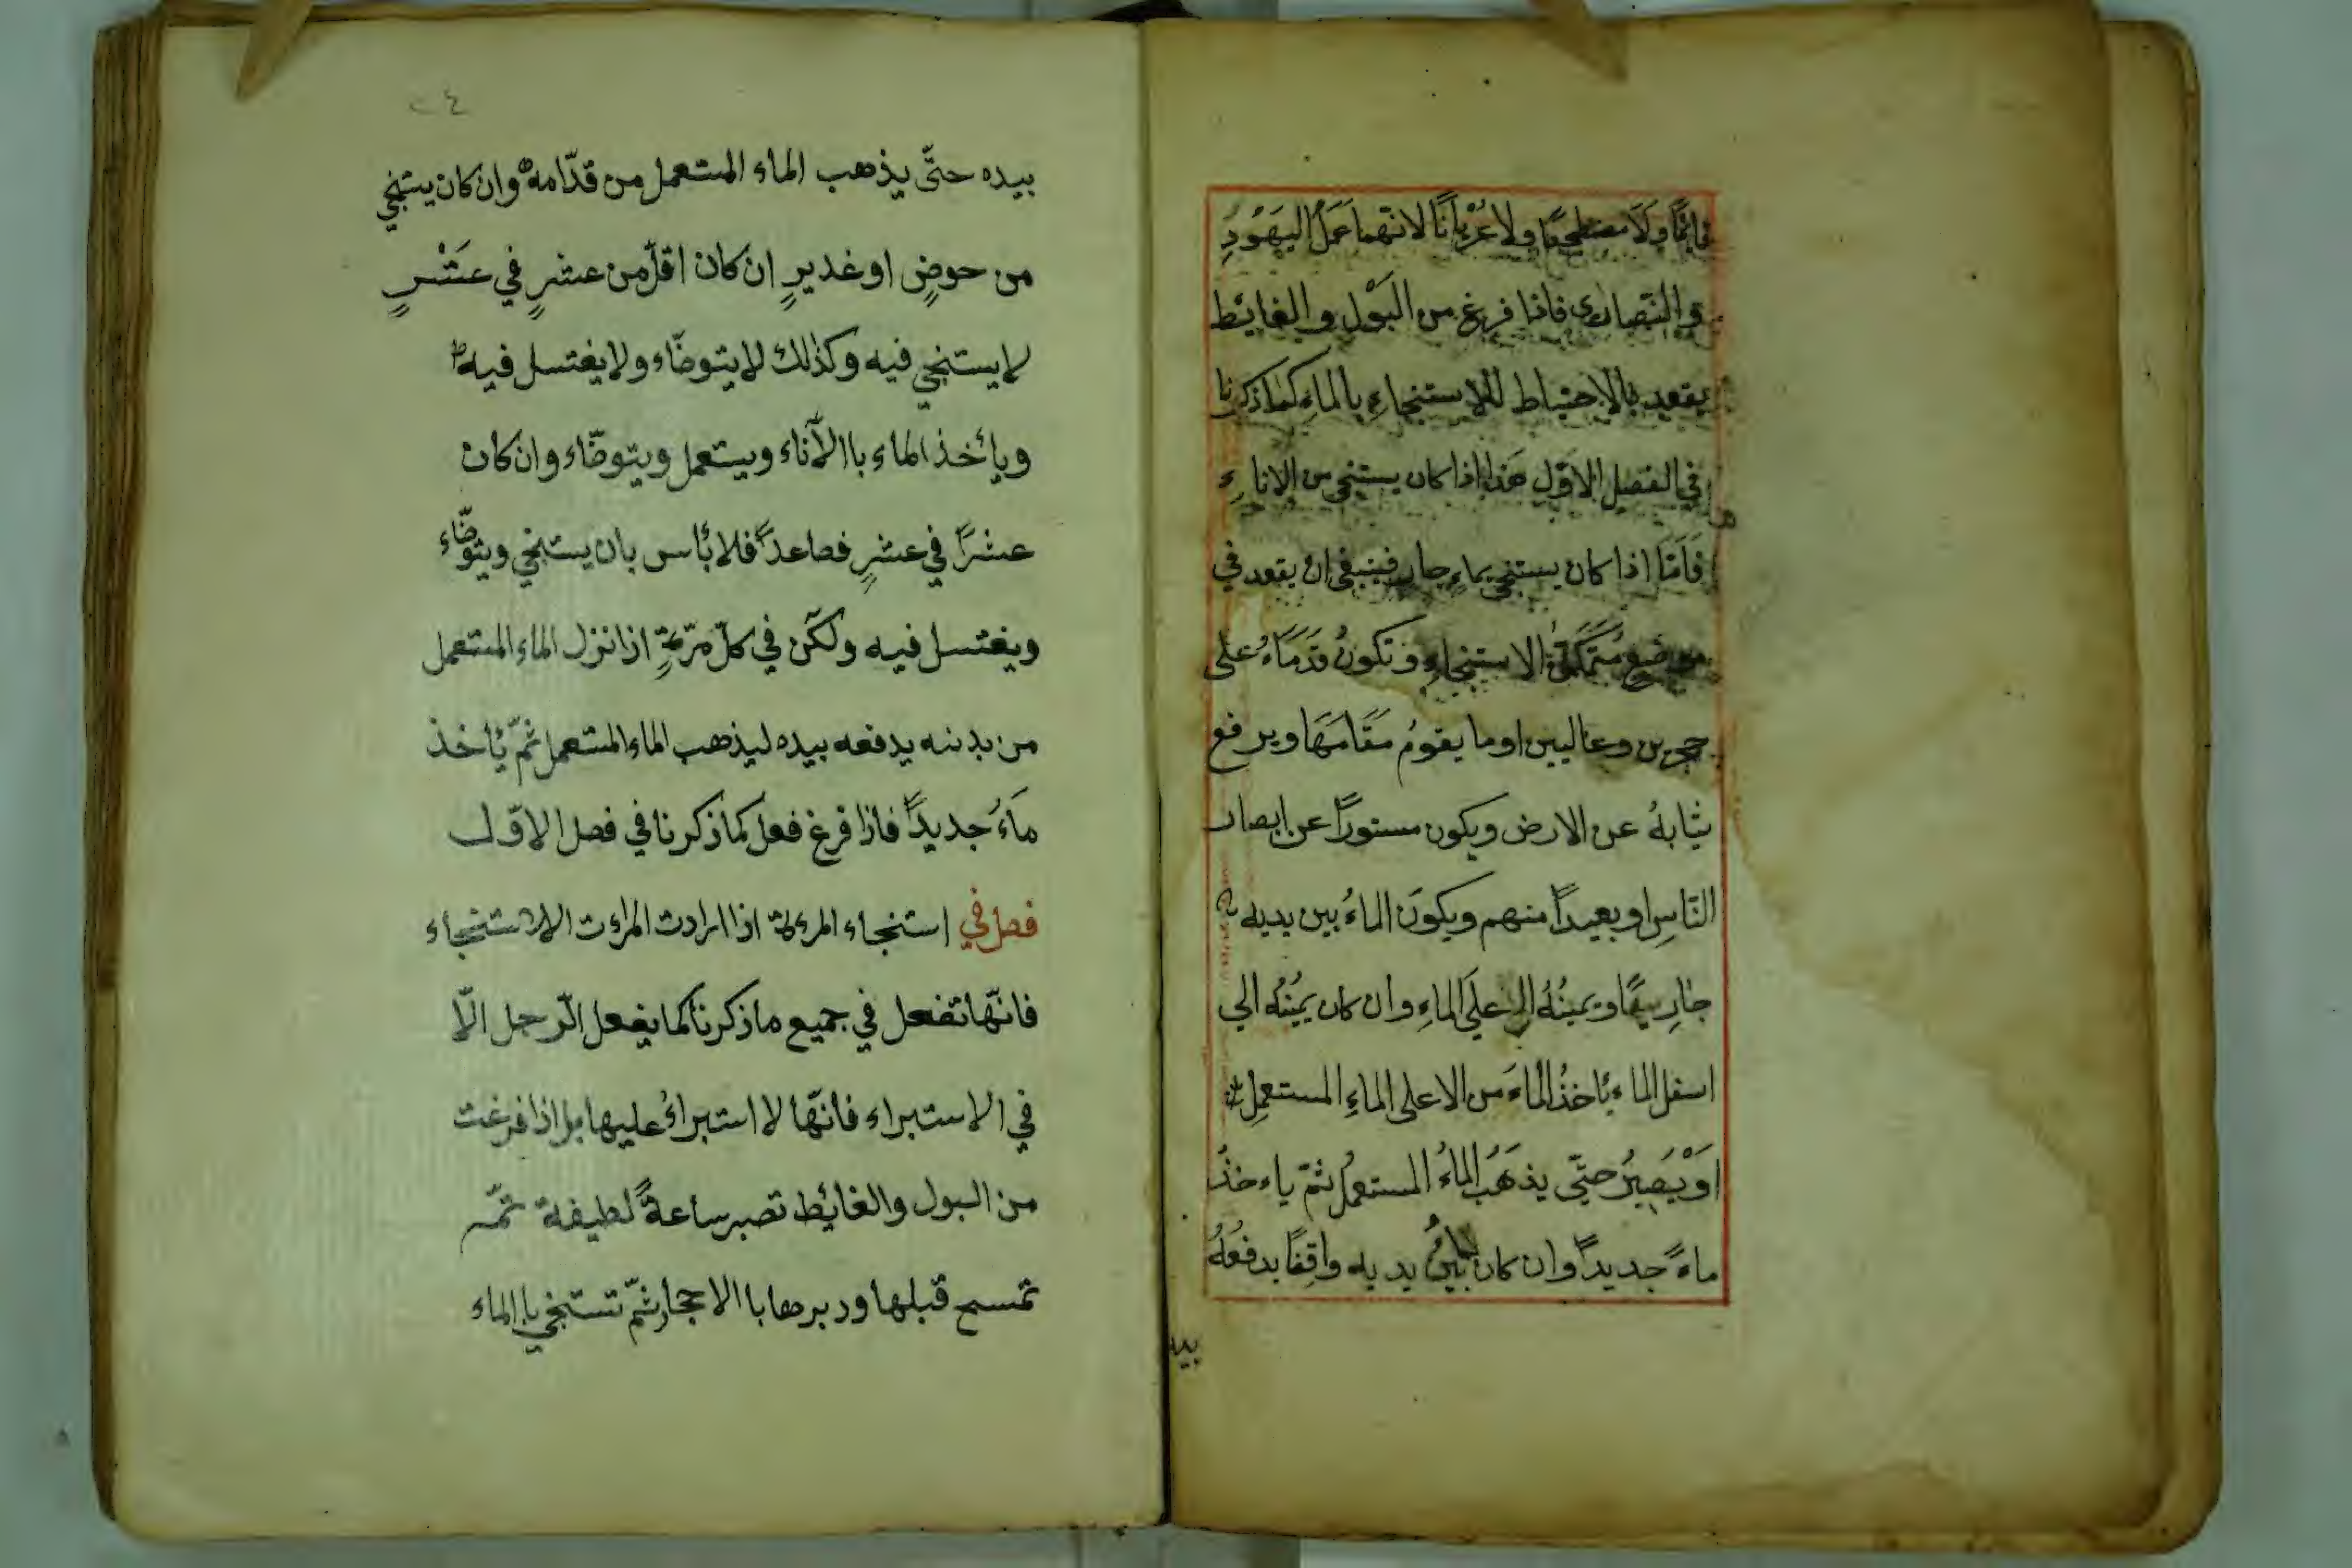 قائمًا وَلَا مضطجعًا ولا عُرْيَانًا لانّهما عَمَلُ اليَهُوْدِ
والنّصارٰى فاذا فرغ من البَوْلِ والغائِط
يقعد بالاحتياط للاستنجاءِ بالماءِ كماذكرنا
في الفصل الاوّلِ هَذا اذا كان يستنجي من الاناءِ
فَاَمَّا اذا كان يستنجي بماءٍ جارٍ فينبغي ان يقعد في
موضع الاستنجاءِ وَتكونُ قَدَمَاهُ على
حجرين وعاليين اوما يقومُ مَقَامَهَا ويرفع
ثيابهُ عن الارض ويكون مستورًا عن ابصار
النّاسِ اوبعيدًا منهم ويكونَ الماءُ بين يديه
جارِيًا ويمينُهُ علَى الماءِ وان كان يمينُه الي
اسفل الماء يأخذُ الماءَ من الاعلى الماءِ المستعملِ
اَوْيَصِيرُ حتّى يذهَبُ الماءُ المستعملُ ثمّ ياءخذُ
ماءً جديدًا وان كان بينُ يديه واقِفًا يدفعُهُ
بيد
٢٤
بيده حتّى يذهب الماء المستعمل من قدّامه وان كان يستنجي
من حوضٍ اوغديرٍ ان كان اقلّ من عشرٍ في عَشْرٍ
لايستنجي فيه وكذلك لايتوضّاء ولايغتسل فيه
ويأخذ الماء باالآناء ويستعمل ويتوضّاء وان كان
عشرًا في عشرٍ فصاعدًا فلابأس بان يستنجي ويتوضّاء
ويغتسل فيه ولكن في كلّ مرّةٍ اذانزل الماء المستعمل
من بدنه يدفعه بيده ليذهب الماء المستعمل ثمّ يأخذ
ماءً جديدًا فاذا فرغ فعل كماذكرنا في فصل الاوّل
فصل في استنجاء المرءة اذا ارادت المراءت الاستنجاء
فانّها تفعل في جميع ماذكرنا كمايفعل الرّجل الّا
في الاستبراء فانّها لا استبراءُ عليها بل اذا فرغت
من البول والغائِط تصبر ساعةً لطيفة ثمّ
تمسح قبلها ودبرها باالاحجار ثمّ تستنجي باالماء